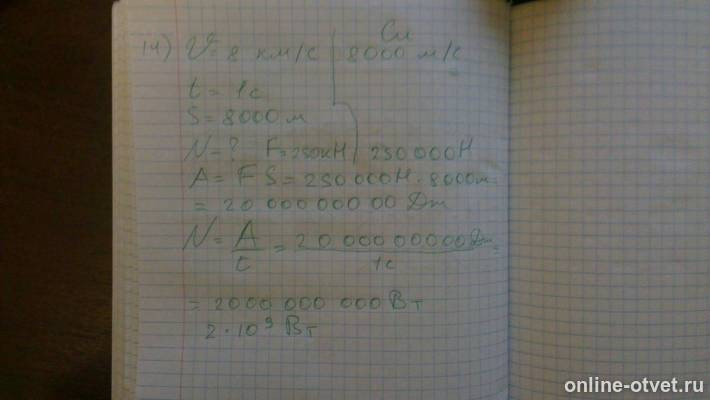 14) V= 8 км/с | Си 8000 м/с
t = 1с
S = 8000 м
N - ? F = 250кН | 250 000Н
A = F S = 250 000Н · 8000м
= 20 000 000 00 Дж
N = A/t = 20 000 00000 Дж / 1с =
= 2000 000 000 Вт
2 · 10⁹ Вт
online-otvet.ru